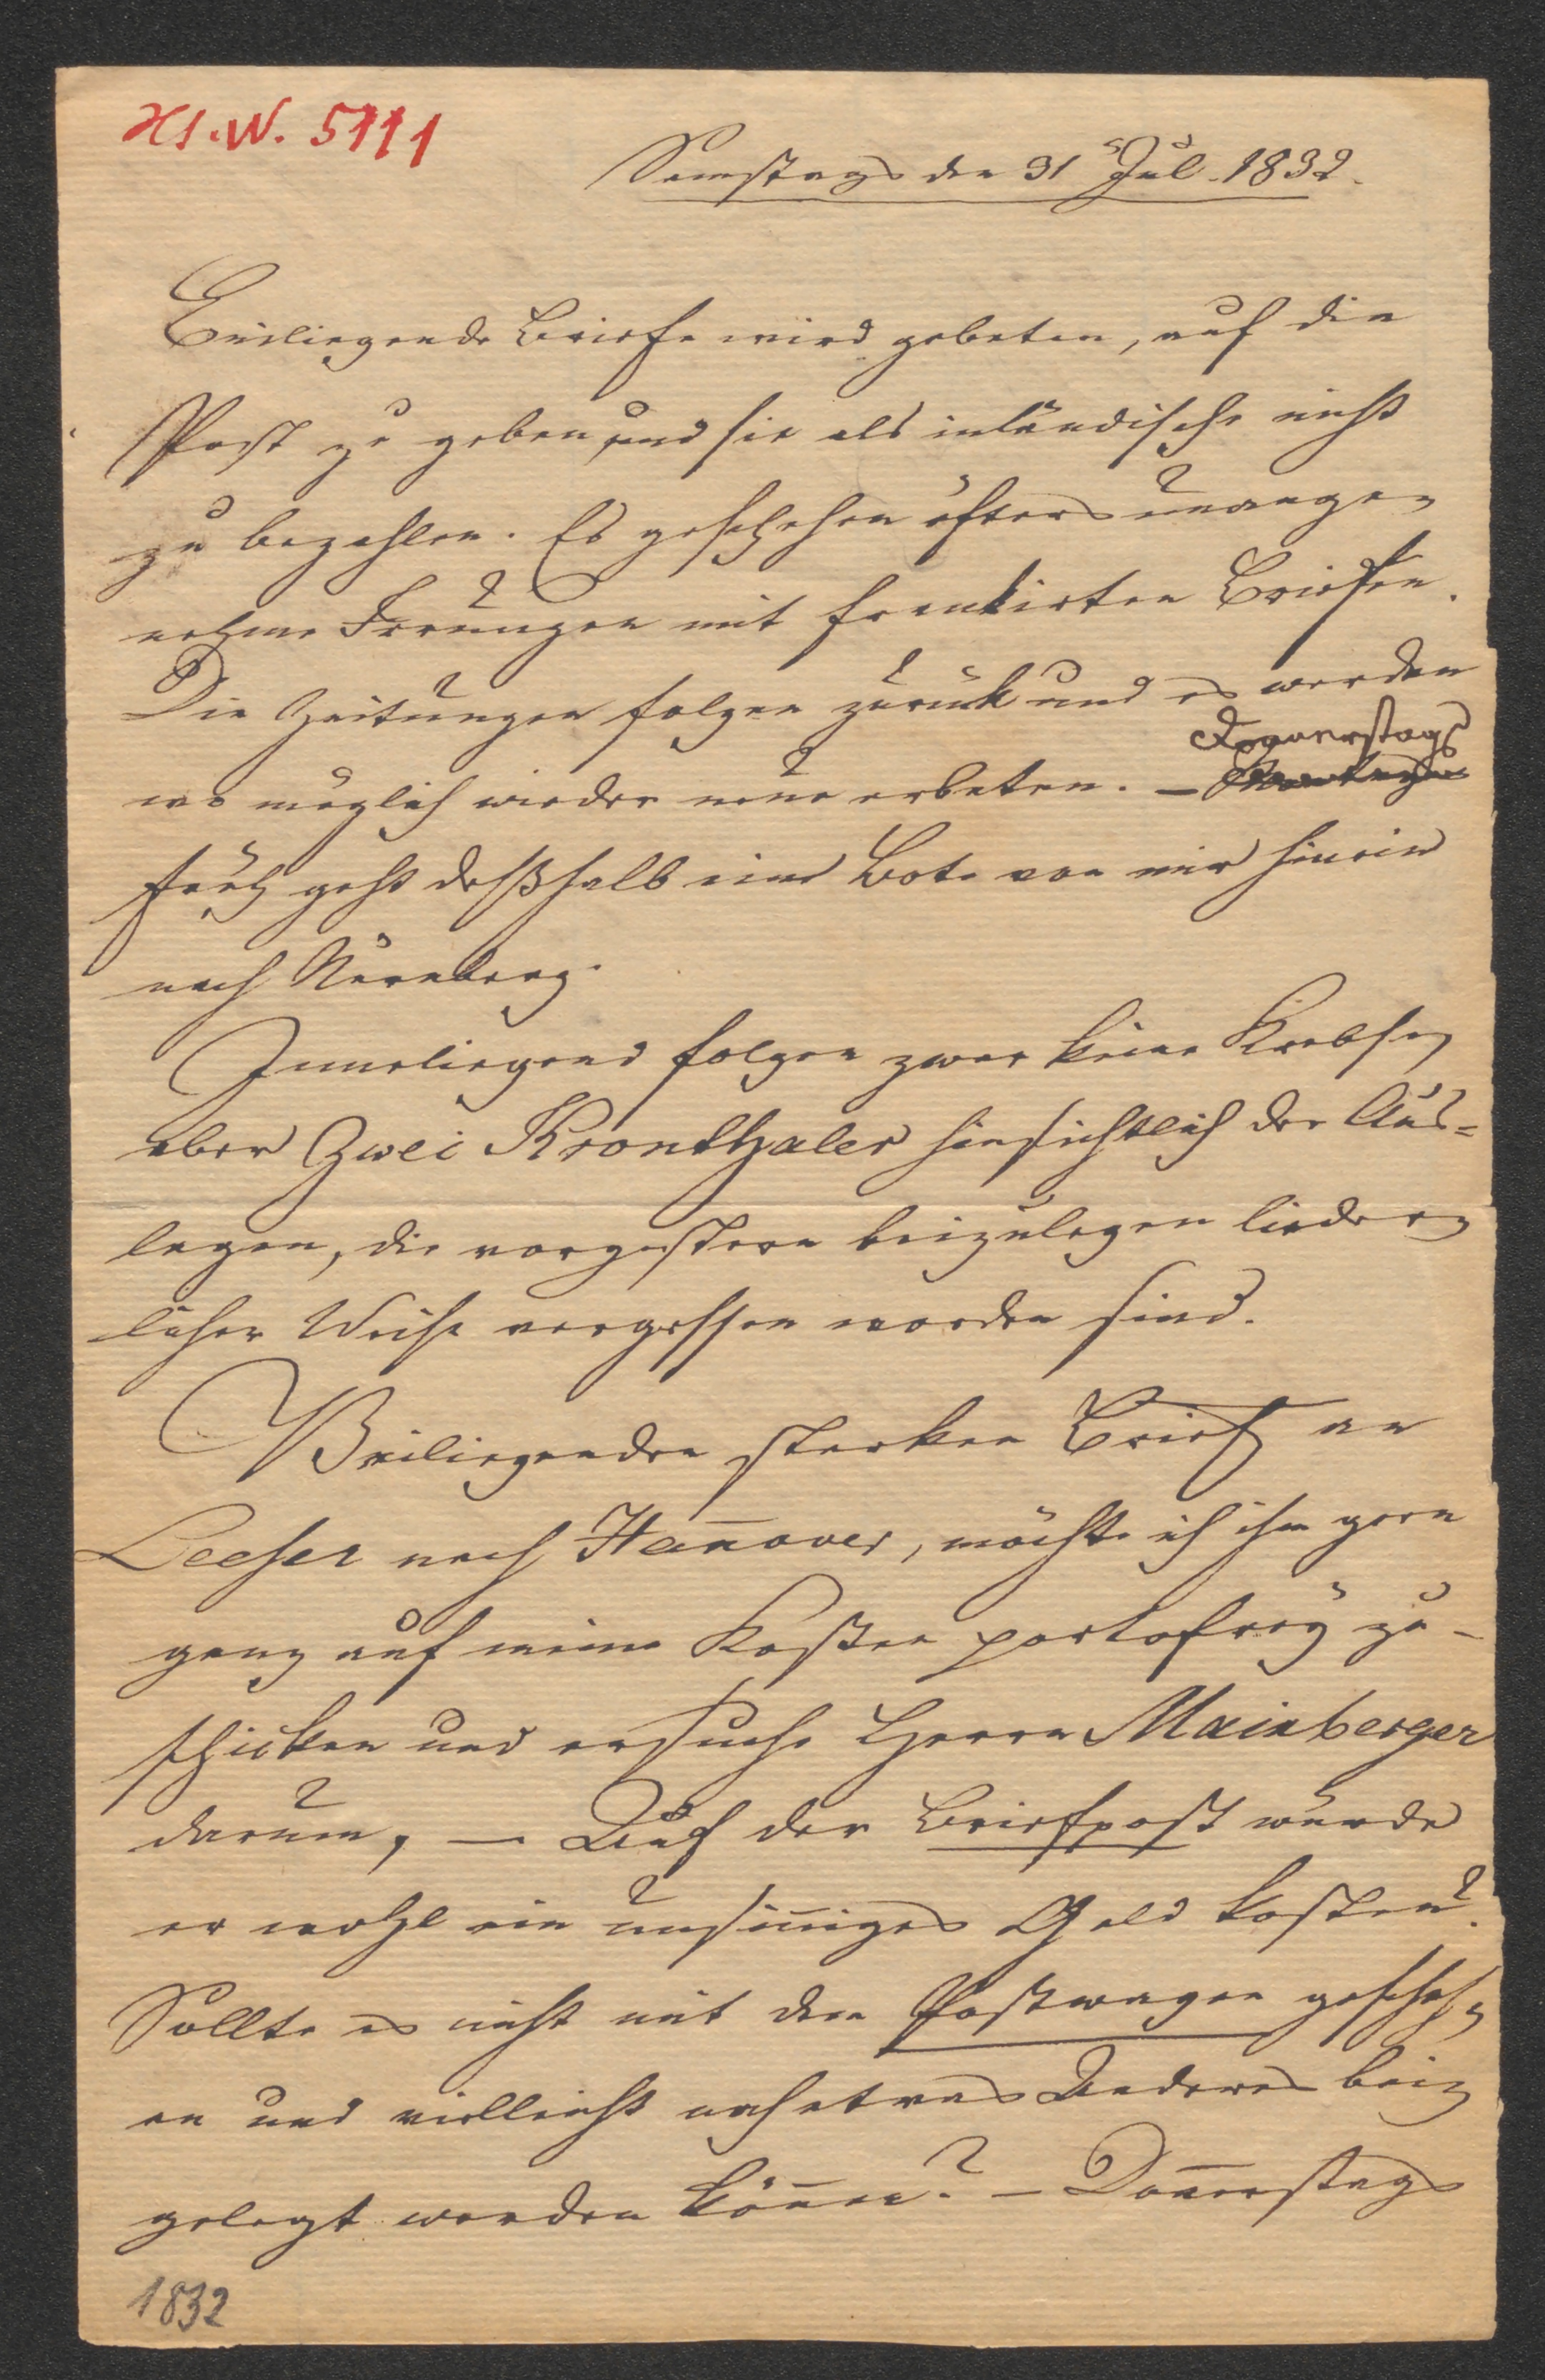 Hs. W. 5111
Samstags den 31 Jul. 1832.
Einliegende Briefe wird gebeten, auf die
Post zu geben und sie als inländische nicht
zu bezahlen. Es geschehen öfters unange-
nehme Irrungen mit frankirten Briefen.
Die Zeitungen folgen zurück und es werden
Donnerstags
wo möglich wieder neue erbeten. –
früh geht deßhalb eine Bote von mir hinein
nach Nürnberg.
Inneliegend folgen zwar keine Krebse,
aber Zwei Kronthaler hinsichtlich der Aus=
lagen, die vorgestern beizulegen lieder-
licher Weise vergessen worden sind.
Beiliegenden starken Brief an
Leeser nach Han̄over, möchte ich ihm gern
ganz auf meine Kosten portofrey zu-
schicken und ersuche Herrn Mainberger
darum, – Auf der Briefpost würde
er wohl ein unsin̄iges Geld kosten.
Sollte es nicht mit dem Postwagen gescheh-
en und vielleicht noch etwas Anderes bei-
gelegt werden kön̄en? – Don̄erstags
1832